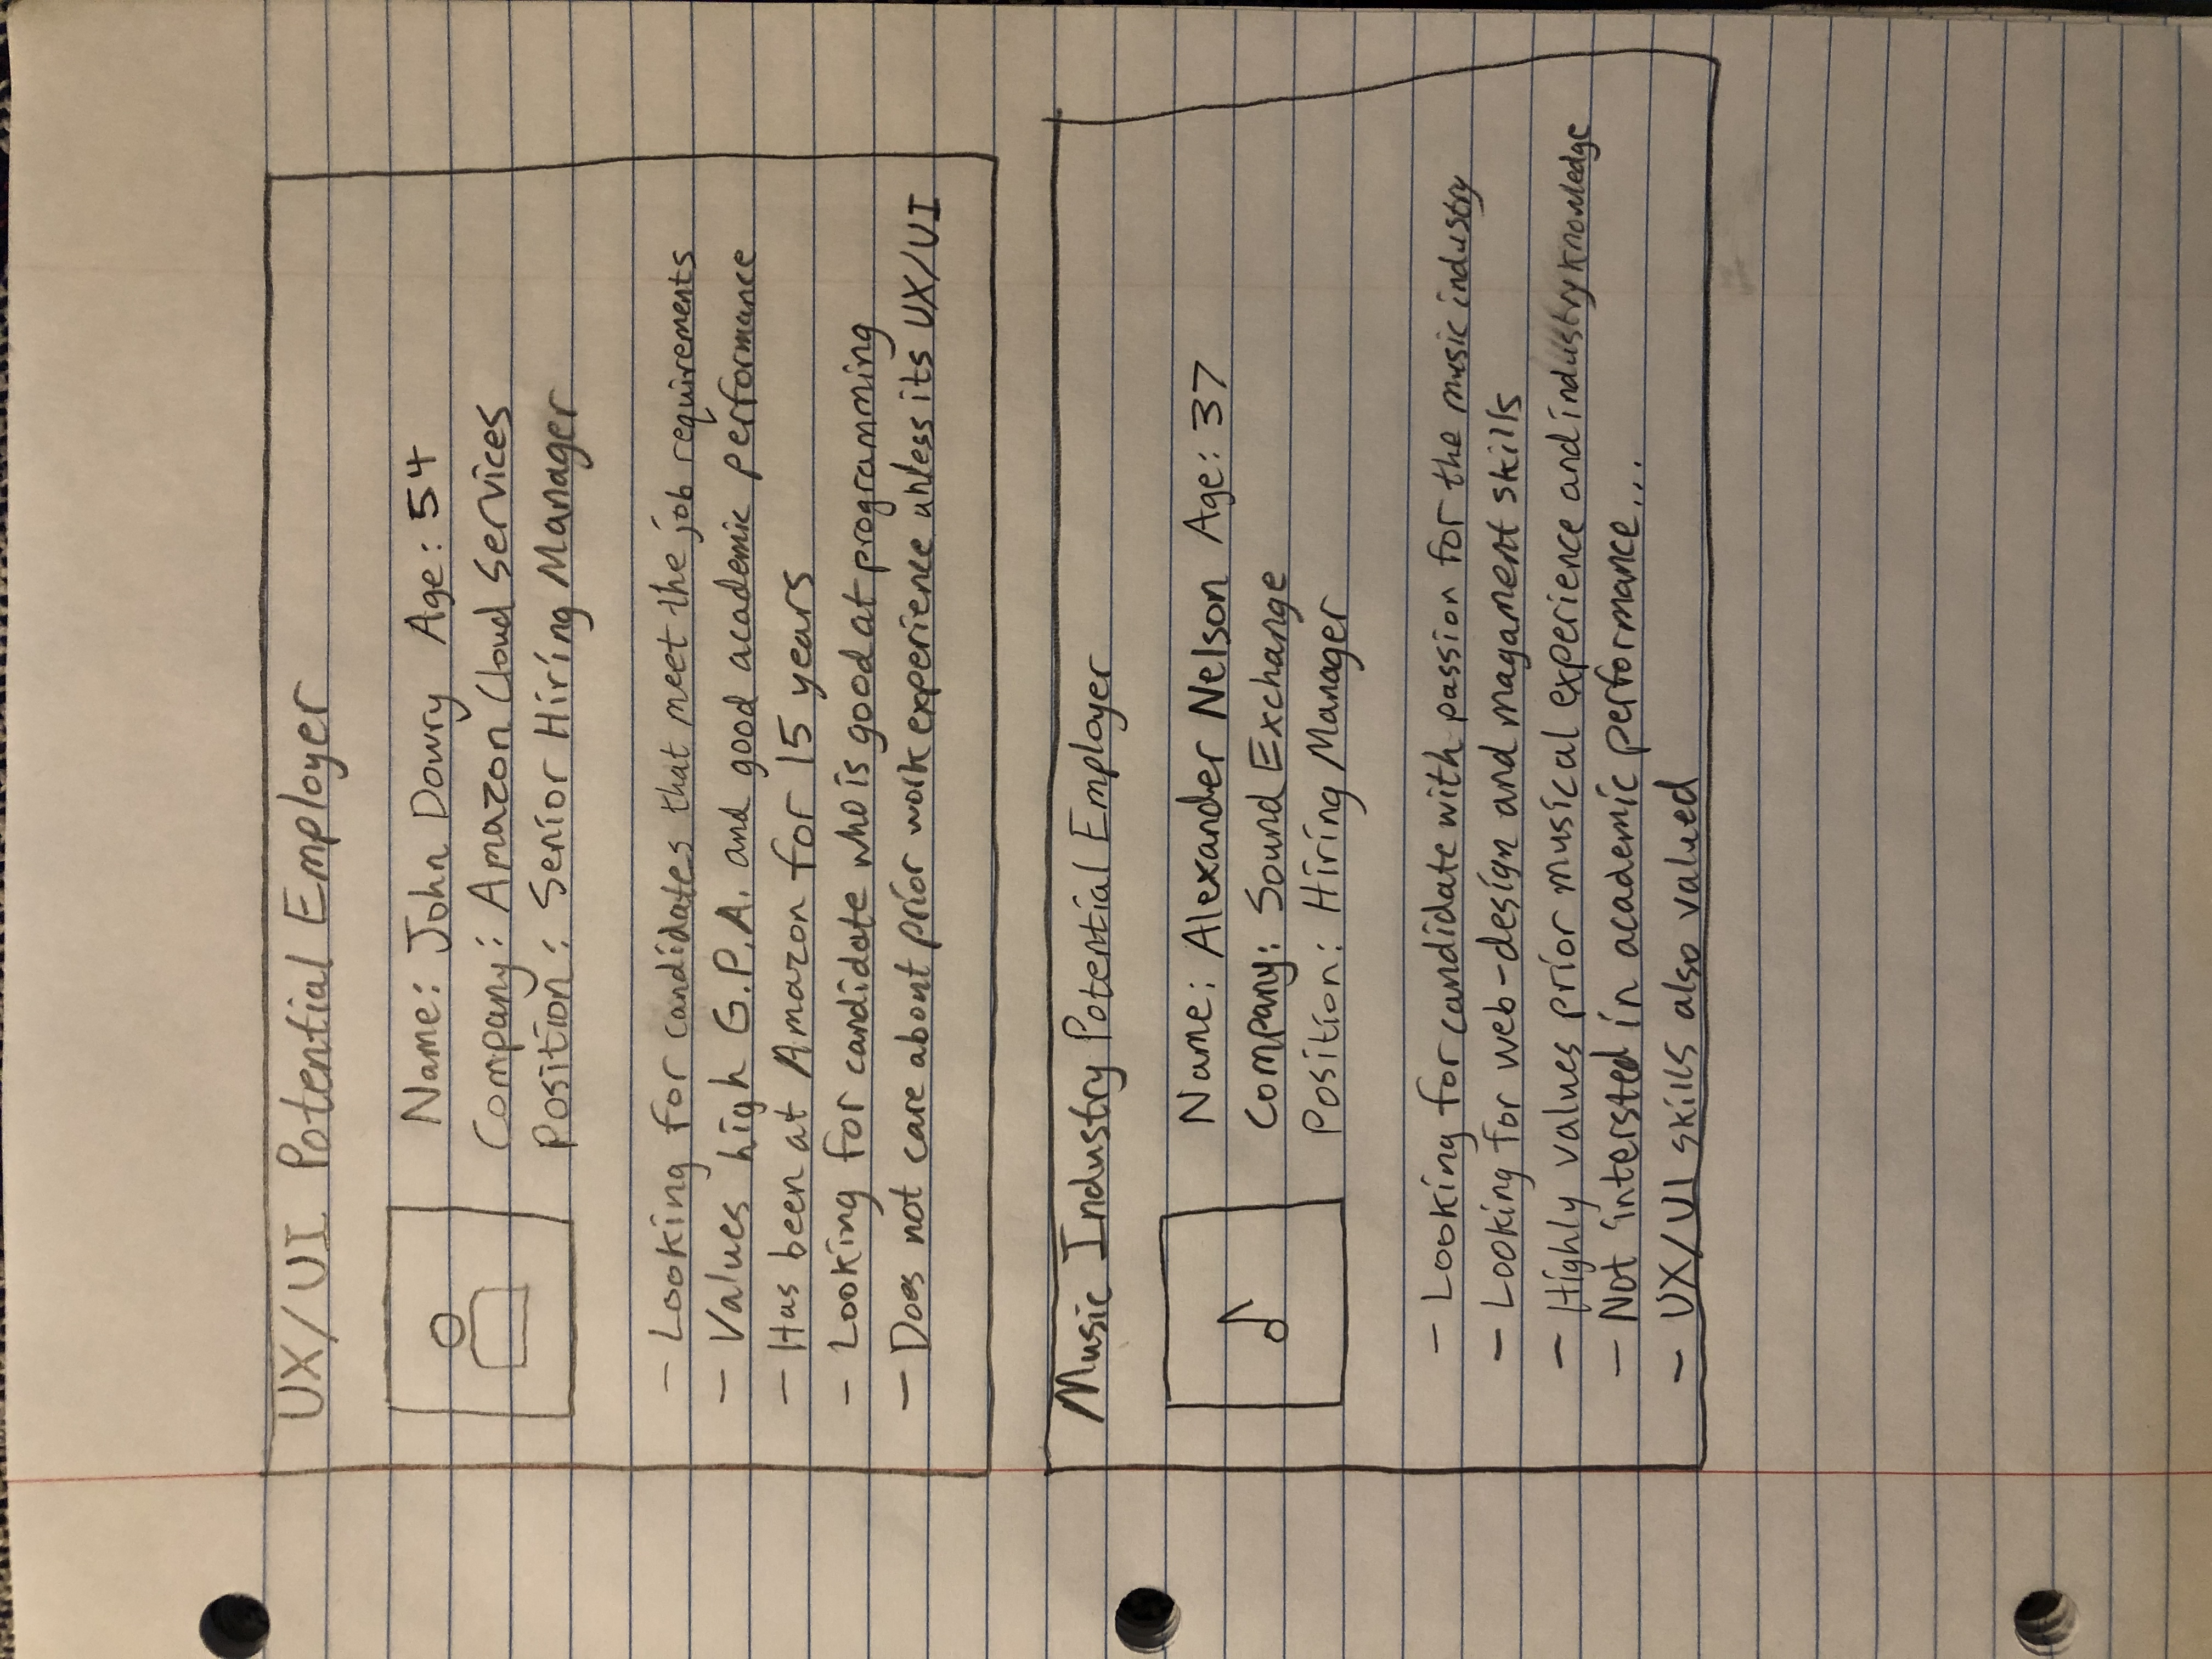 UX/UI Potential Employer
Name: John Dowry Age: 54
Company: Amazon Cloud Services
Position: Senior Hiring Manager
- Looking for candidates that meet the job requirements
- Values high G.P.A. and good academic performance
- Has been at Amazon for 15 years
- Looking for candidate who is good at programming
- Does not care about prior work experience unless its UX/UI
Music Industry Potential Employer
Name: Alexander Nelson Age: 37
Company: Sound Exchange
Position: Hiring Manager
- Looking for candidate with passion for the music industry
- Looking for web-design and magament skills
- Highly values prior musical experience and industry knowledge
- Not intersted in academic performance...
- UX/UI skills also valued